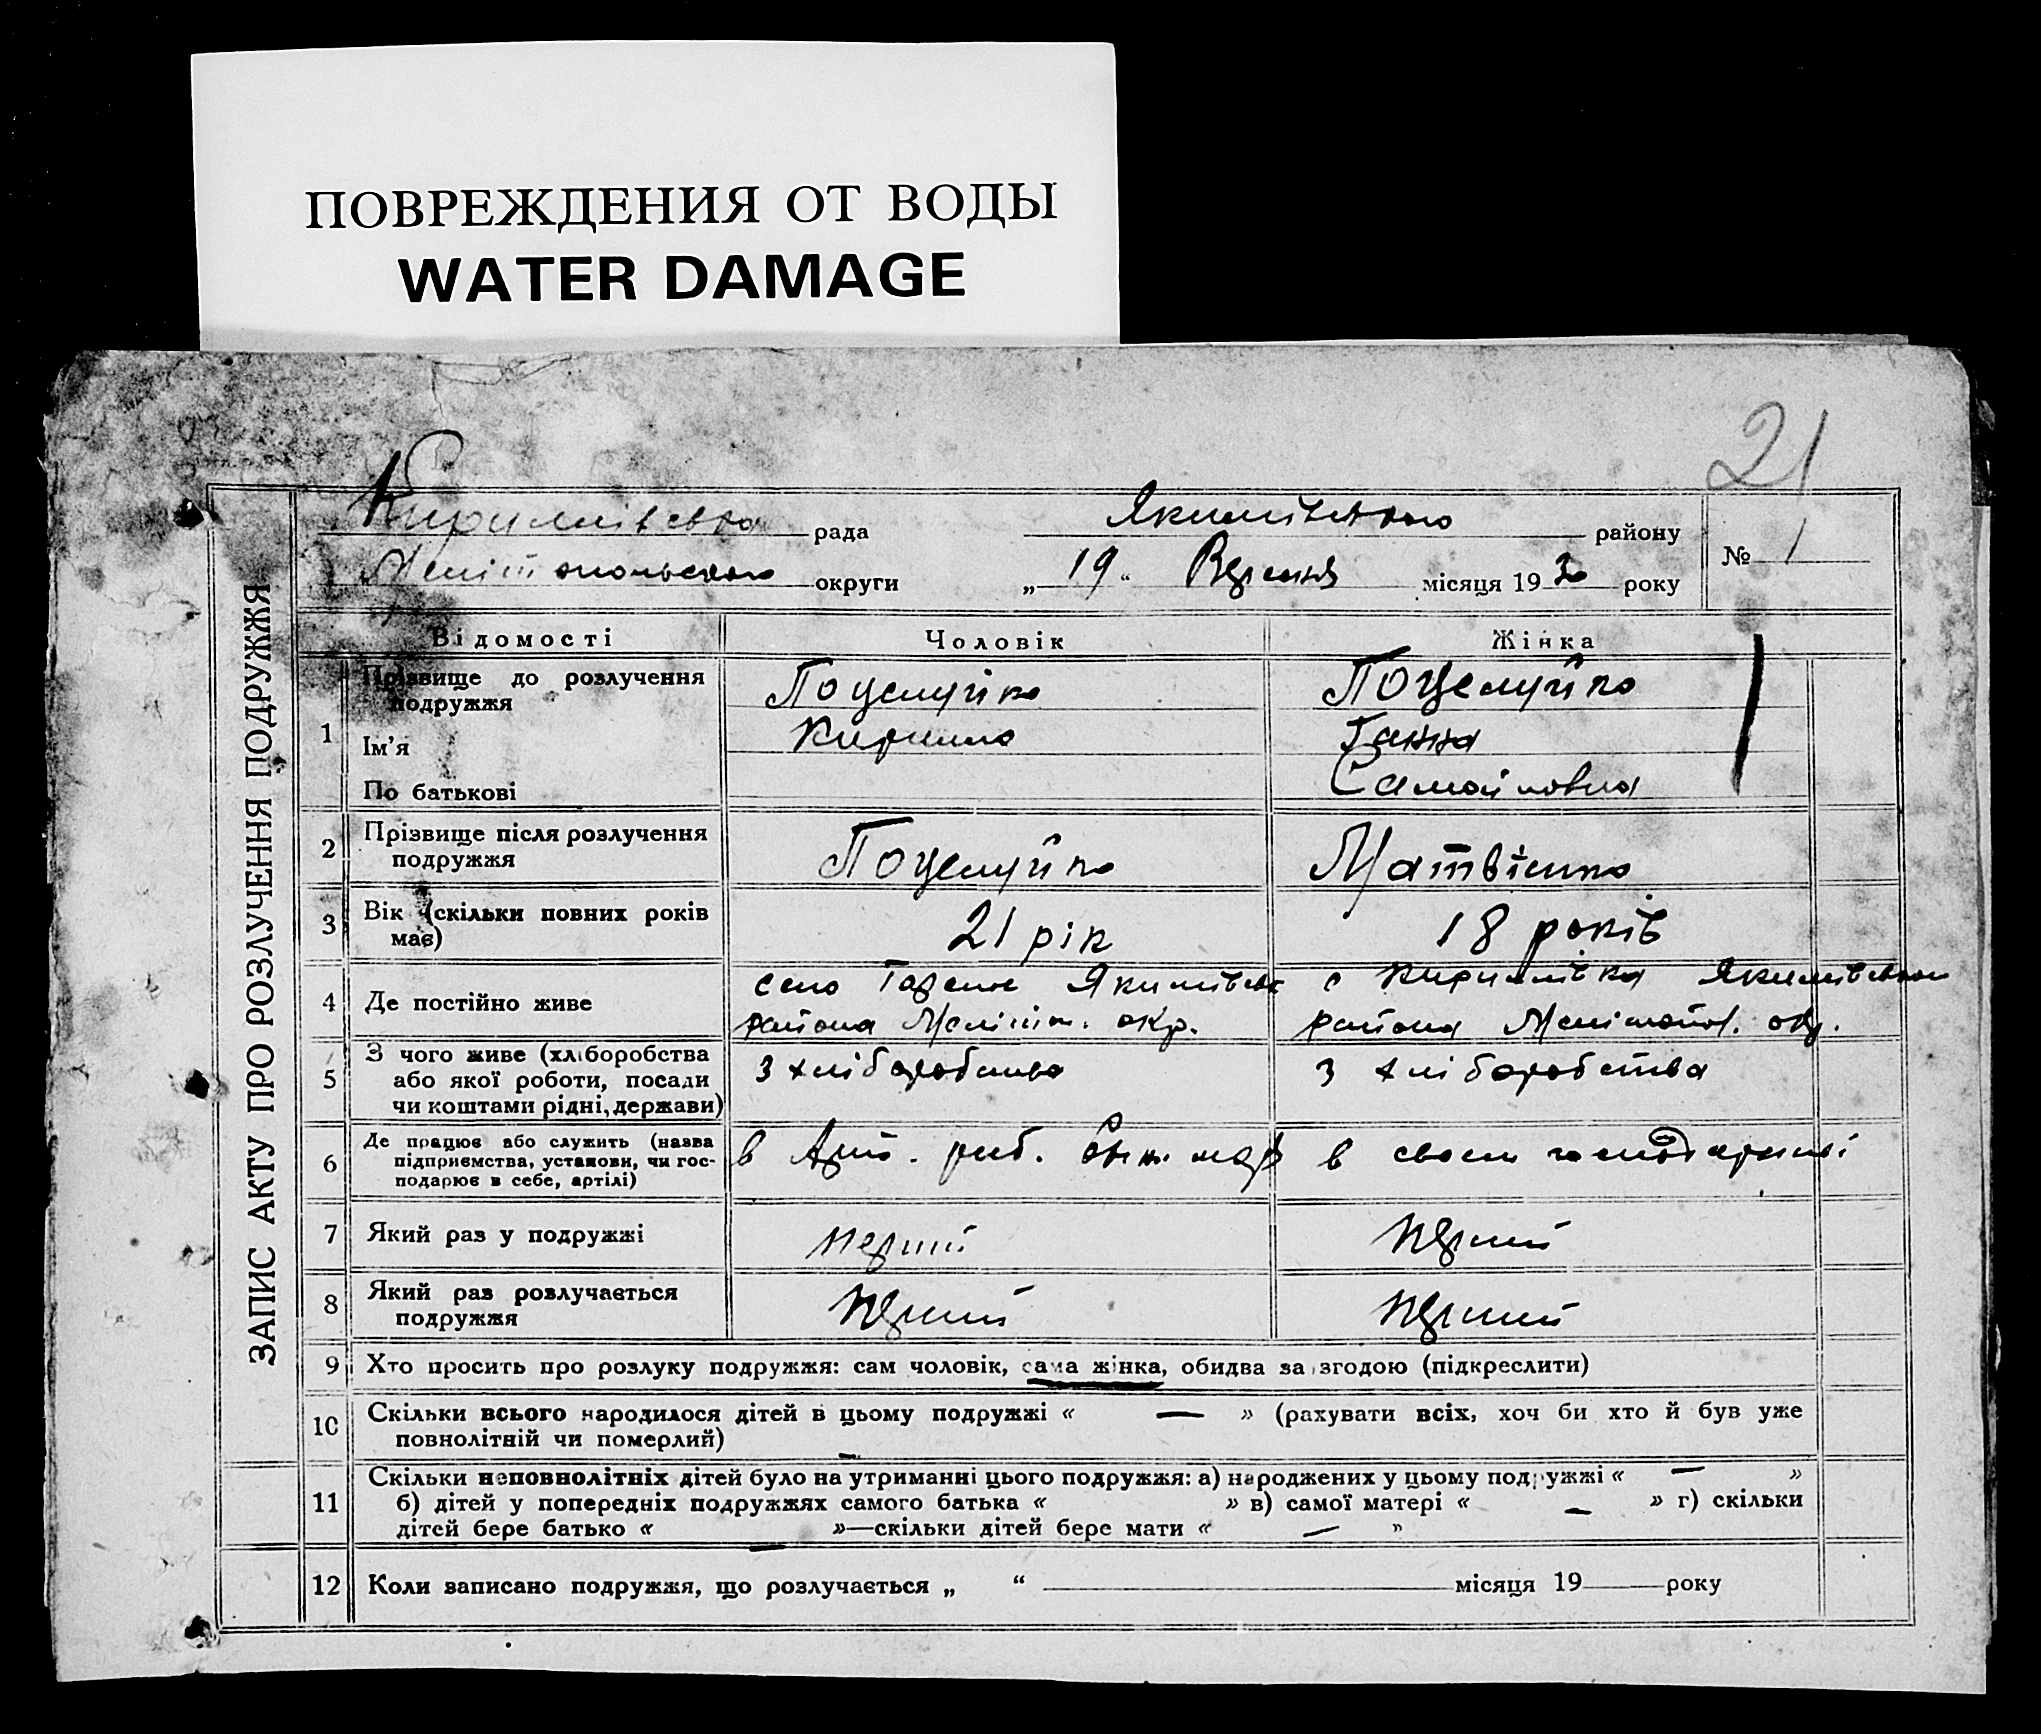 ПОВРЕЖДЕНИЯ ОТ ВОДЫ
WATER DAMAGE
21
ЗАПИС АКТУ ПРО РОЗЛУЧЕННЯ ПОДРУЖЖЯ
Кирилівська рада Якимівського району
№ 1
Мелітопольської округи „19“ Вересня місяця 1930 року
Відомості Чоловік Жінка
1 Прізвище до розлучення подружжя Поцелуйко Поцелуйко
Ім'я Кирило Ганна
По батькові Самойловна
2 Прізвище після розлучення подружжя Поцелуйко Матвієнко
3 Вік (скільки повних років має) 21 рік 18 років
4 Де постійно живе село Якимівськ с Кирилівка Якимівського
района Меліт. окр. района Мелітопол. окр.
5 З чого живе (хліборобства З хліборобства З хліборобства
або якої роботи, посади
чи коштами рідні, держави)
6 Де працює або служить (назва в Арт. риб. в своем господарстві
підприємства, установи, чи гос-
подарює в себе, артілі)
7 Який раз у подружжі перший перший
8 Який раз розлучається подружжя перший перший
9 Хто просить про розлуку подружжя: сам чоловік, сама жінка, обидва за згодою (підкреслити)
10 Скільки всього народилося дітей в цьому подружжі « — » (рахувати всіх, хоч би хто й був уже
повнолітній чи померлий)
11 Скільки неповнолітніх дітей було на утриманні цього подружжя: а) народжених у цьому подружжі « — »
б) дітей у попередніх подружжях самого батька « — » в) самої матері « — » г) скільки
дітей бере батько « — »—скільки дітей бере мати « — »
12 Коли записано подружжя, що розлучається „ “ місяця 19 року